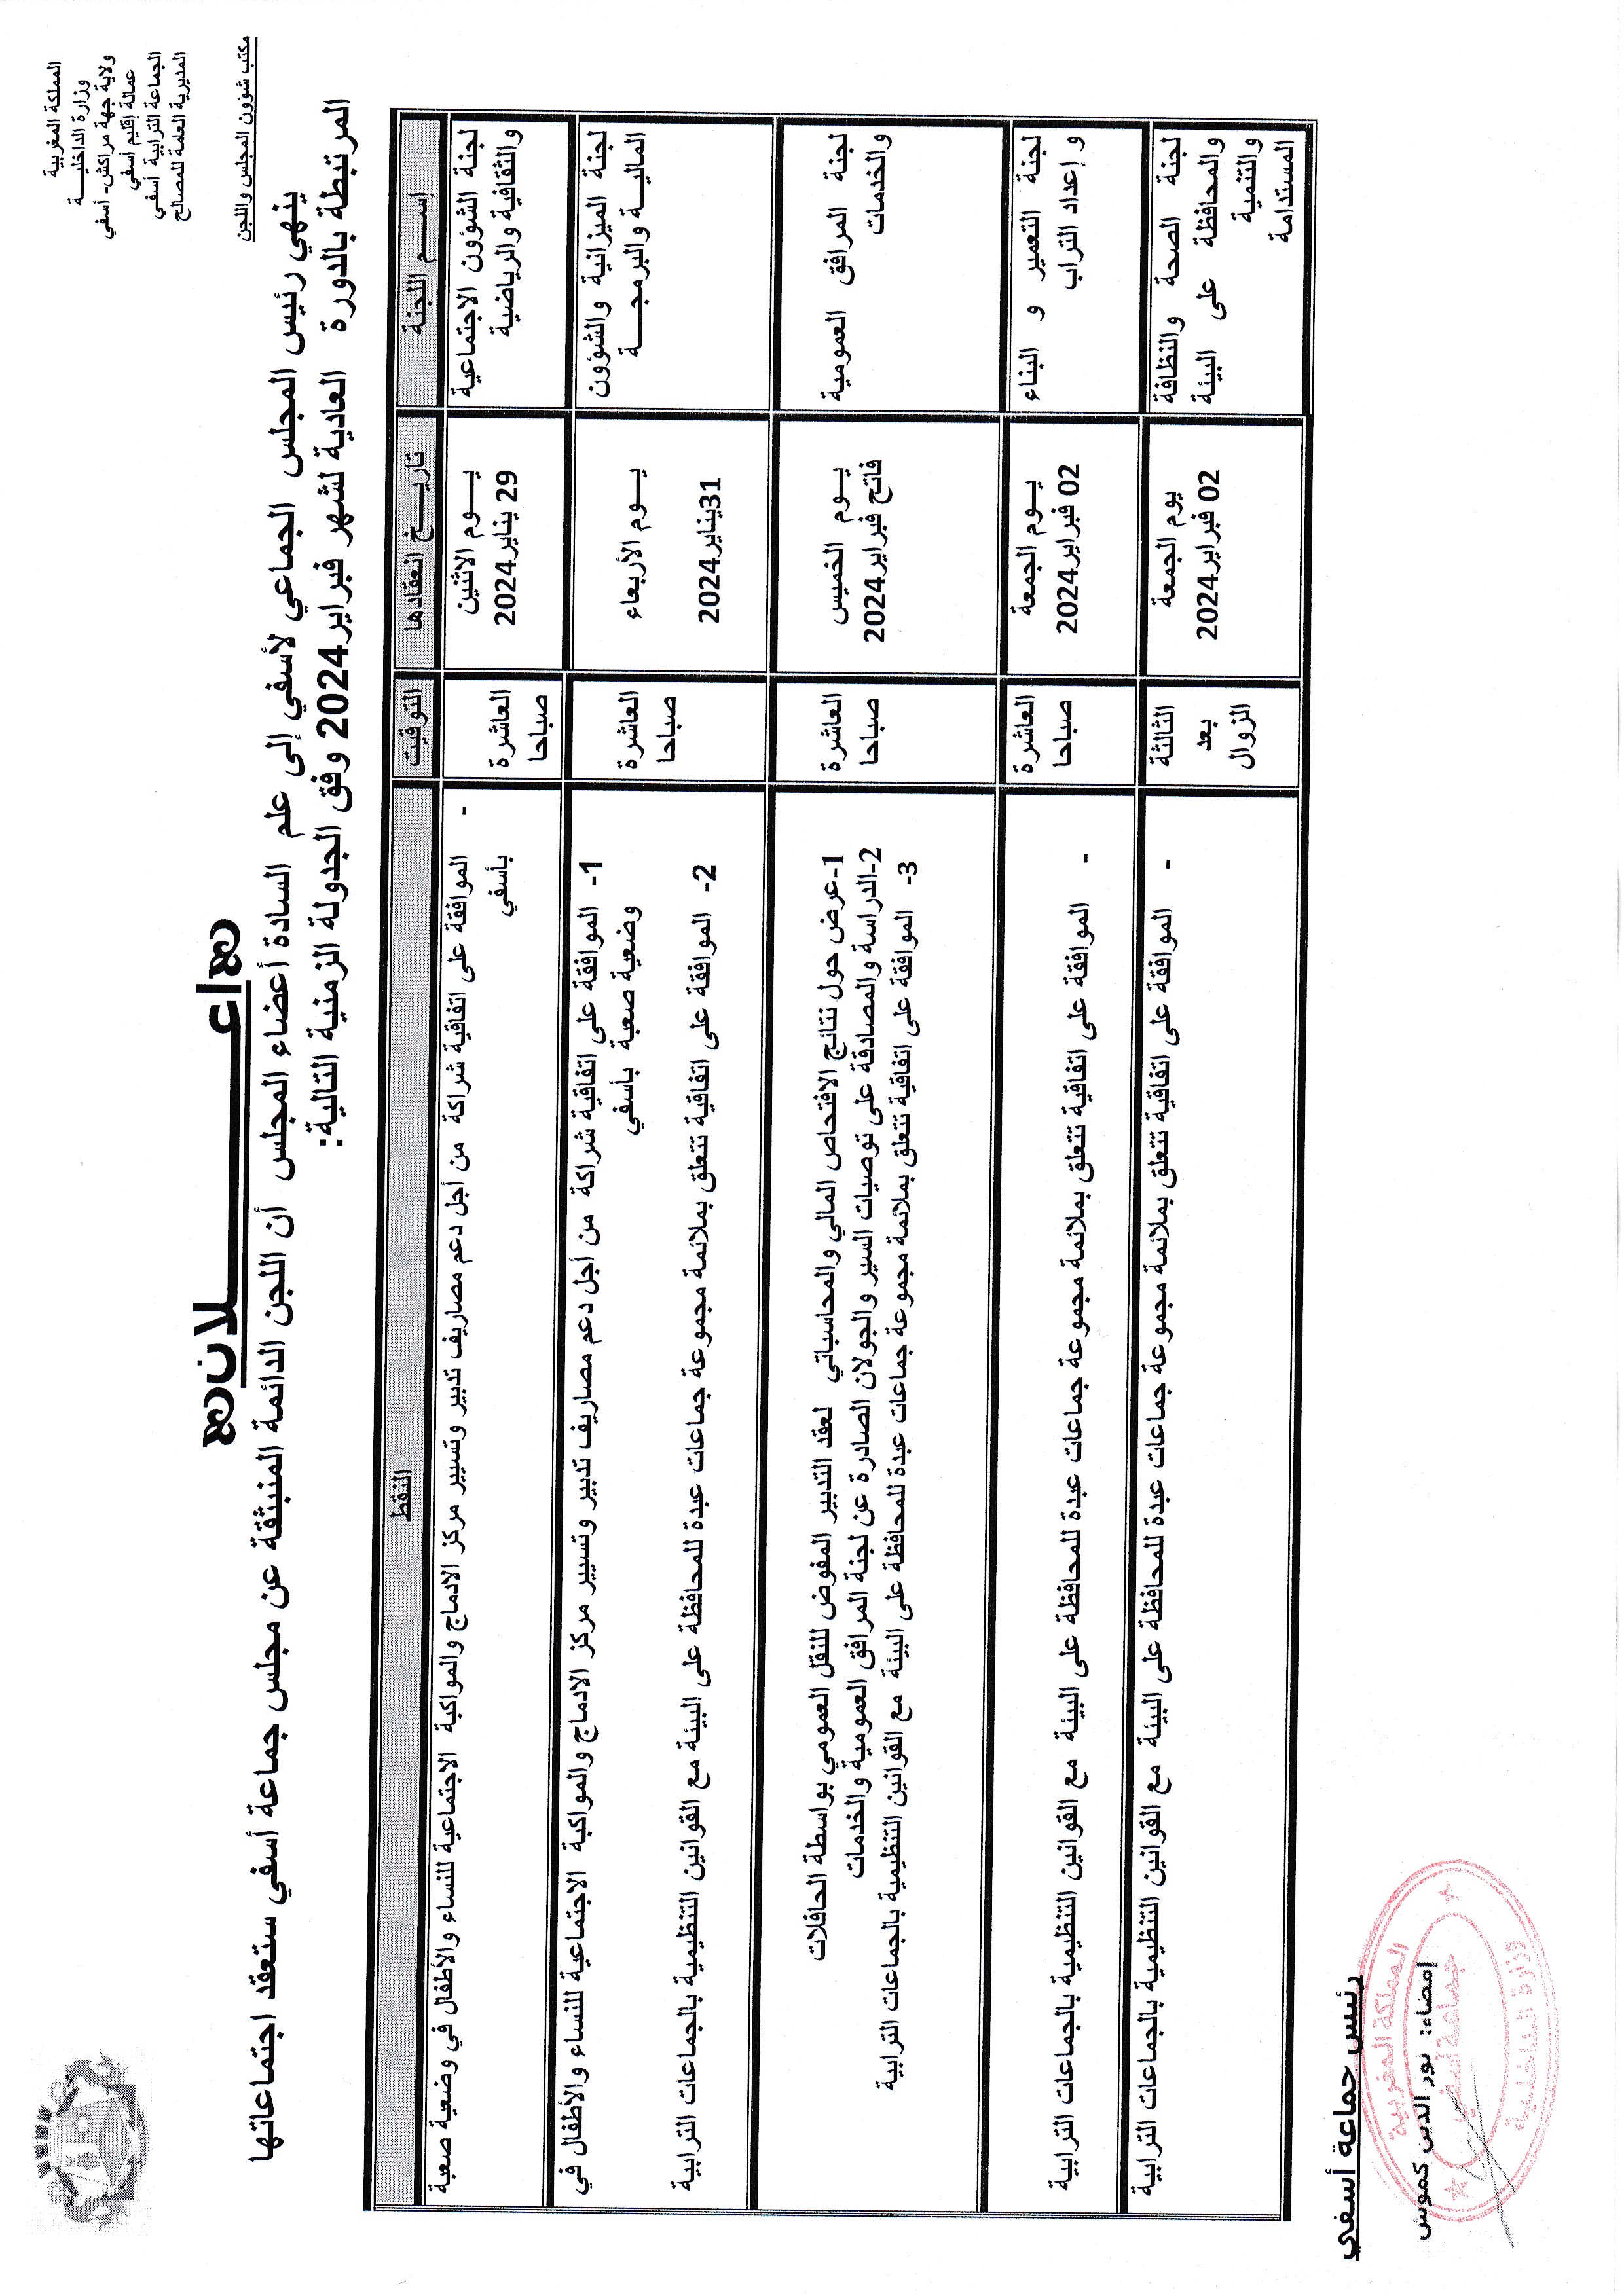 المملكة المغربية
وزارة الداخليـــة
ولاية جهة مراكش- أسفي
عمالة إقليم أسفي
الجماعة الترابية أسفي
المديرية العامة للمصالح
مكتب شؤون المجلس واللجن
اعـــــــــلان
ينهي رئيس المجلس الجماعي لأسفي إلى علم السادة أعضاء المجلس أن اللجن الدائمة المنبثقة عن مجلس جماعة أسفي ستعقد اجتماعاتها
المرتبطة بالدورة العادية لشهر فبراير2024 وفق الجدولة الزمنية التالية:
إســـم اللجنة
تاريـــخ انعقادها
التوقيت
النقط
لجنة الشؤون الاجتماعية
والثقافية والرياضية
يـــوم الاثنين
29 يناير2024
العاشرة
صباحا
- الموافقة على اتفاقية شراكة من أجل دعم مصاريف تدبير وتسيير مركز الادماج والمواكبة الاجتماعية للنساء والأطفال في وضعية صعبة
بأسفي
لجنة الميزانية والشؤون
الماليـــة والبرمجـــة
يـــوم الأربعاء
31يناير2024
العاشرة
صباحا
1- الموافقة على اتفاقية شراكة من أجل دعم مصاريف تدبير وتسيير مركز الادماج والمواكبة الاجتماعية للنساء والأطفال في
وضعية صعبة بأسفي
2- الموافقة على اتفاقية تتعلق بملائمة مجموعة جماعات عبدة للمحافظة على البيئة مع القوانين التنظيمية بالجماعات الترابية
لجنة المرافق العمومية
والخدمات
يـــوم الخميس
فاتح فبراير2024
العاشرة
صباحا
1-عرض حول نتائج الافتحاص المالي والمحاسباتي لعقد التدبير المفوض للنقل العمومي بواسطة الحافلات
2-الدراسة والمصادقة على توصيات السير والجولان الصادرة عن لجنة المرافق العمومية والخدمات
3- الموافقة على اتفاقية تتعلق بملائمة مجموعة جماعات عبدة للمحافظة على البيئة مع القوانين التنظيمية بالجماعات الترابية
لجنة التعمير و البناء
و إعداد التراب
يـــوم الجمعة
02 فبراير2024
العاشرة
صباحا
- الموافقة على اتفاقية تتعلق بملائمة مجموعة جماعات عبدة للمحافظة على البيئة مع القوانين التنظيمية بالجماعات الترابية
لجنة الصحة والنظافة
والمحافظة على البيئة
والتنمية
المستدامة
يوم الجمعة
02 فبراير2024
الثالثة
بعد
الزوال
- الموافقة على اتفاقية تتعلق بملائمة مجموعة جماعات عبدة للمحافظة على البيئة مع القوانين التنظيمية بالجماعات الترابية
رئيس جماعة أسفي
إمضاء: نور الدين كموش
المملكة المغربية
جماعة أسفي
وزارة الداخلية